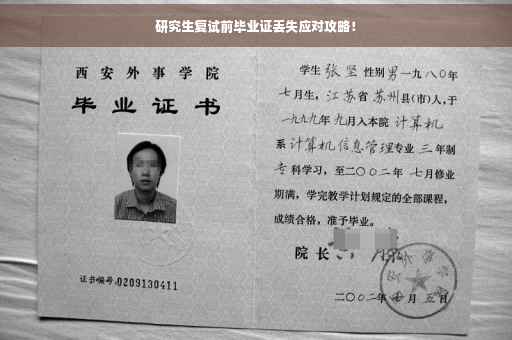 研究生复试前毕业证丢失应对攻略！
西安外事学院
毕业证书
证书编号:0209130411
学生 张坚 性别 男 一九八〇年
七月生，江苏省 苏州县(市)人，于
一九九九年 九月入本院 计算机
系 计算机信息管理专业 三 年制
专科学习，至二〇〇二年 七月修业
期满，学完教学计划规定的全部课程，
成绩合格，准予毕业。
院长
二〇〇二年 七月 五日